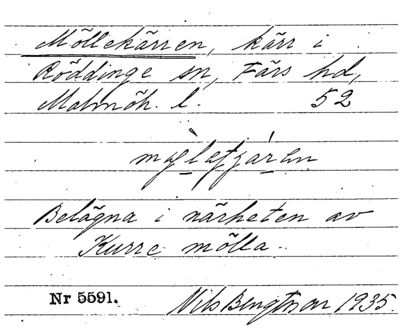 Möllekärren, kärr i
Röddinge sn, Färs hd,
Malmöh. l. 52
Belägna i närheten av
Kurre mölla.
Nr 5591. Nils Bengtsson 1935.